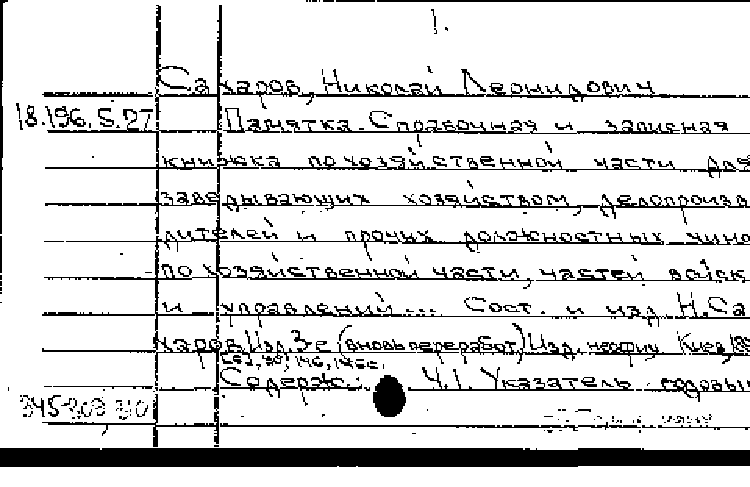 1.
Сахаров, Николай Леонидович
18.196.5.27 Памятка. Справочная и записная
книжка по хозяйственной части для
заведывающих хозяйством, делопроизв
дителей и прочих должностных чино
по хозяйственной части, частей войск
и управлений... Сост. и изд. Н. Са
харов. Изд. 3-е (вновь переработ.) Изд. неофиц. Киев,
Содерж.: Ч. 1. Указатель годовы